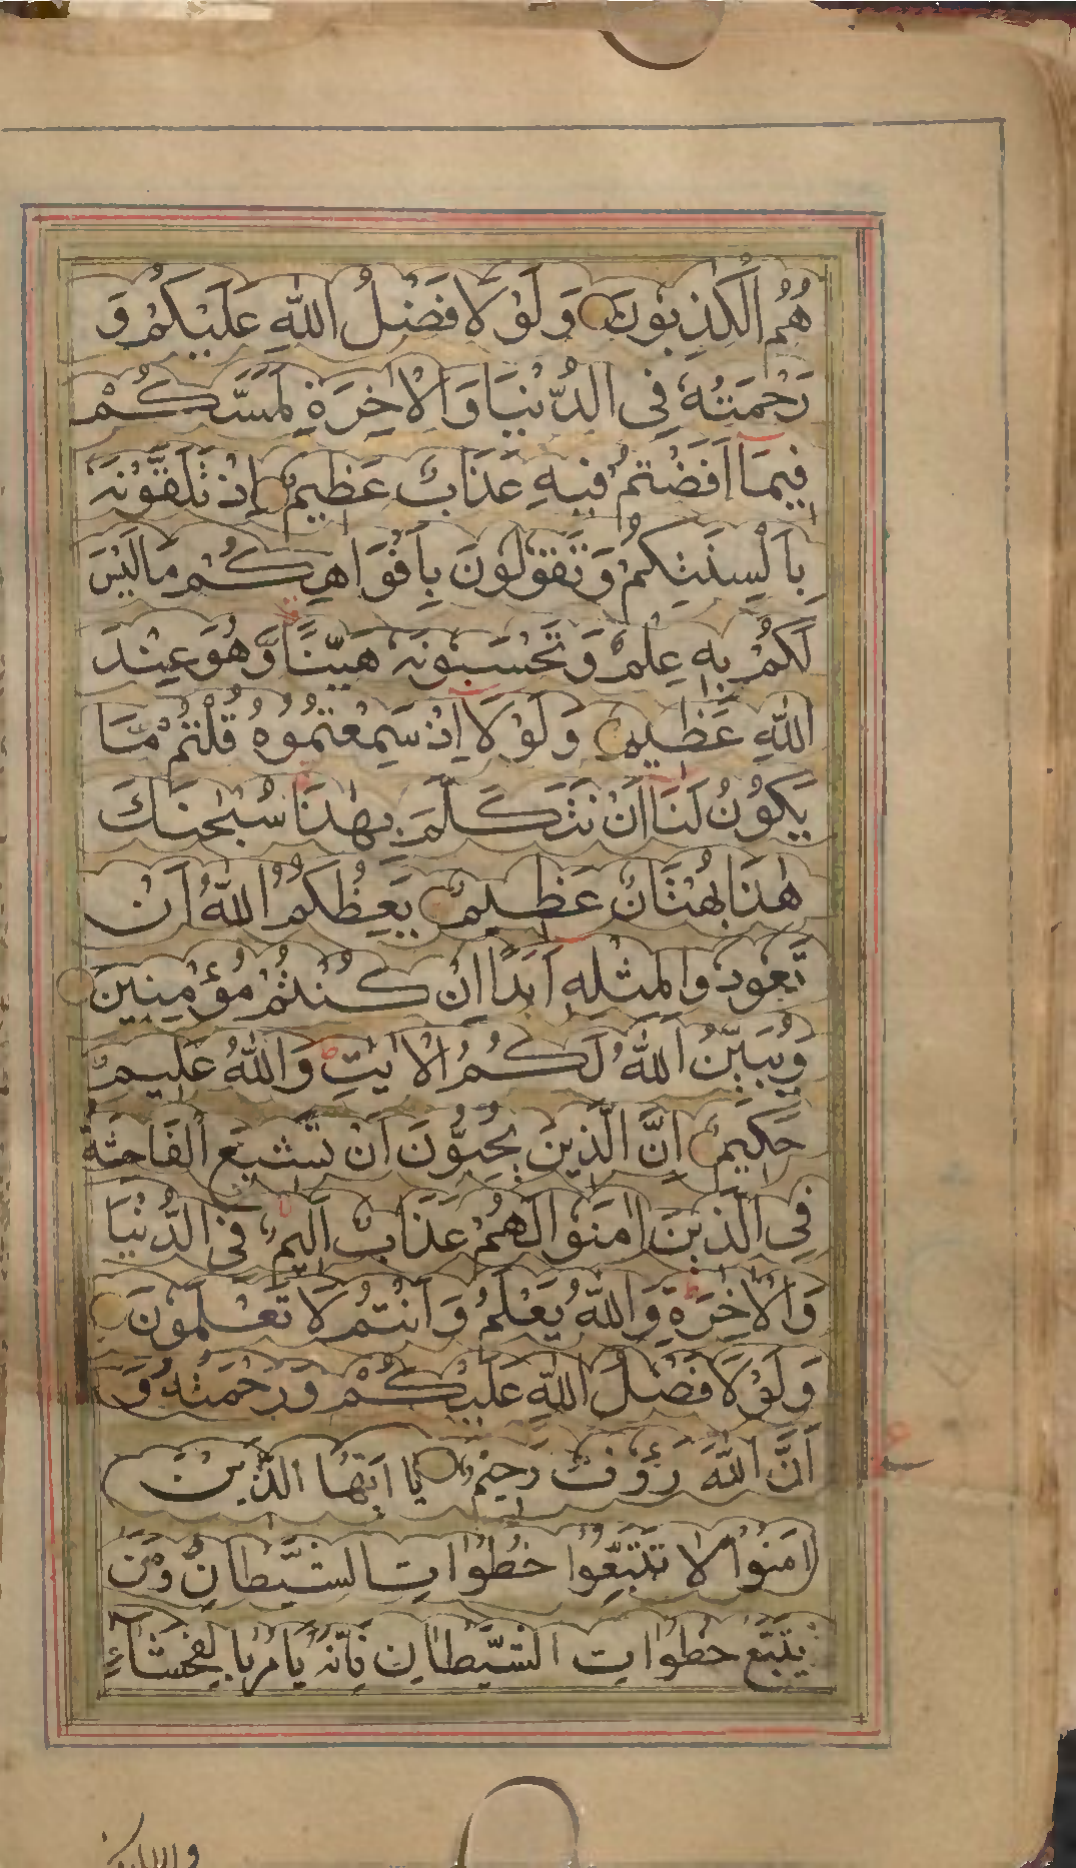 هُمُ الْكٰذِبُونَ وَلَوْلَا فَضْلُ اللّٰهِ عَلَيْكُمْ وَ
رَحْمَتُهٗ فِى الدُّنْيَا وَالْاٰخِرَةِ لَمَسَّكُمْ
فِيمَا اَفَضْتُمْ فِيهِ عَذَابٌ عَظِيمٌ اِذْ تَلَقَّوْنَهٗ
بِاَلْسِنَتِكُمْ وَتَقُولُونَ بِاَفْوَاهِكُمْ مَا لَيْسَ
لَكُمْ بِهٖ عِلْمٌ وَتَحْسَبُونَهٗ هَيِّنًا وَّهُوَ عِنْدَ
اللّٰهِ عَظِيمٌ وَلَوْلَا اِذْ سَمِعْتُمُوهُ قُلْتُمْ مَا
يَكُونُ لَنَا اَنْ نَتَكَلَّمَ بِهٰذَا سُبْحٰنَكَ
هٰذَا بُهْتَانٌ عَظِيمٌ يَعِظُكُمُ اللّٰهُ اَنْ
تَعُودُوا لِمِثْلِهٖ اَبَدًا اِنْ كُنْتُمْ مُؤْمِنِينَ
وَيُبَيِّنُ اللّٰهُ لَكُمُ الْاٰيٰتِ وَاللّٰهُ عَلِيمٌ
حَكِيمٌ اِنَّ الَّذِينَ يُحِبُّونَ اَنْ تَشِيعَ الْفَاحِشَةُ
فِى الَّذِينَ اٰمَنُوا لَهُمْ عَذَابٌ اَلِيمٌ فِى الدُّنْيَا
وَالْاٰخِرَةِ وَاللّٰهُ يَعْلَمُ وَاَنْتُمْ لَا تَعْلَمُونَ
وَلَوْلَا فَضْلُ اللّٰهِ عَلَيْكُمْ وَرَحْمَتُهٗ وَ
اَنَّ اللّٰهَ رَؤُفٌ رَحِيْمٌ يَا اَيُّهَا الَّذِيْنَ
اٰمَنُوْا لَا تَتَّبِعُوا خُطُوَاتِ الشَّيْطَانِ وَمَنْ
يَتَّبِعْ خُطُوَاتِ الشَّيْطَانِ فَاِنَّهٗ يَاْمُرُ بِالْفَحْشَاءِ